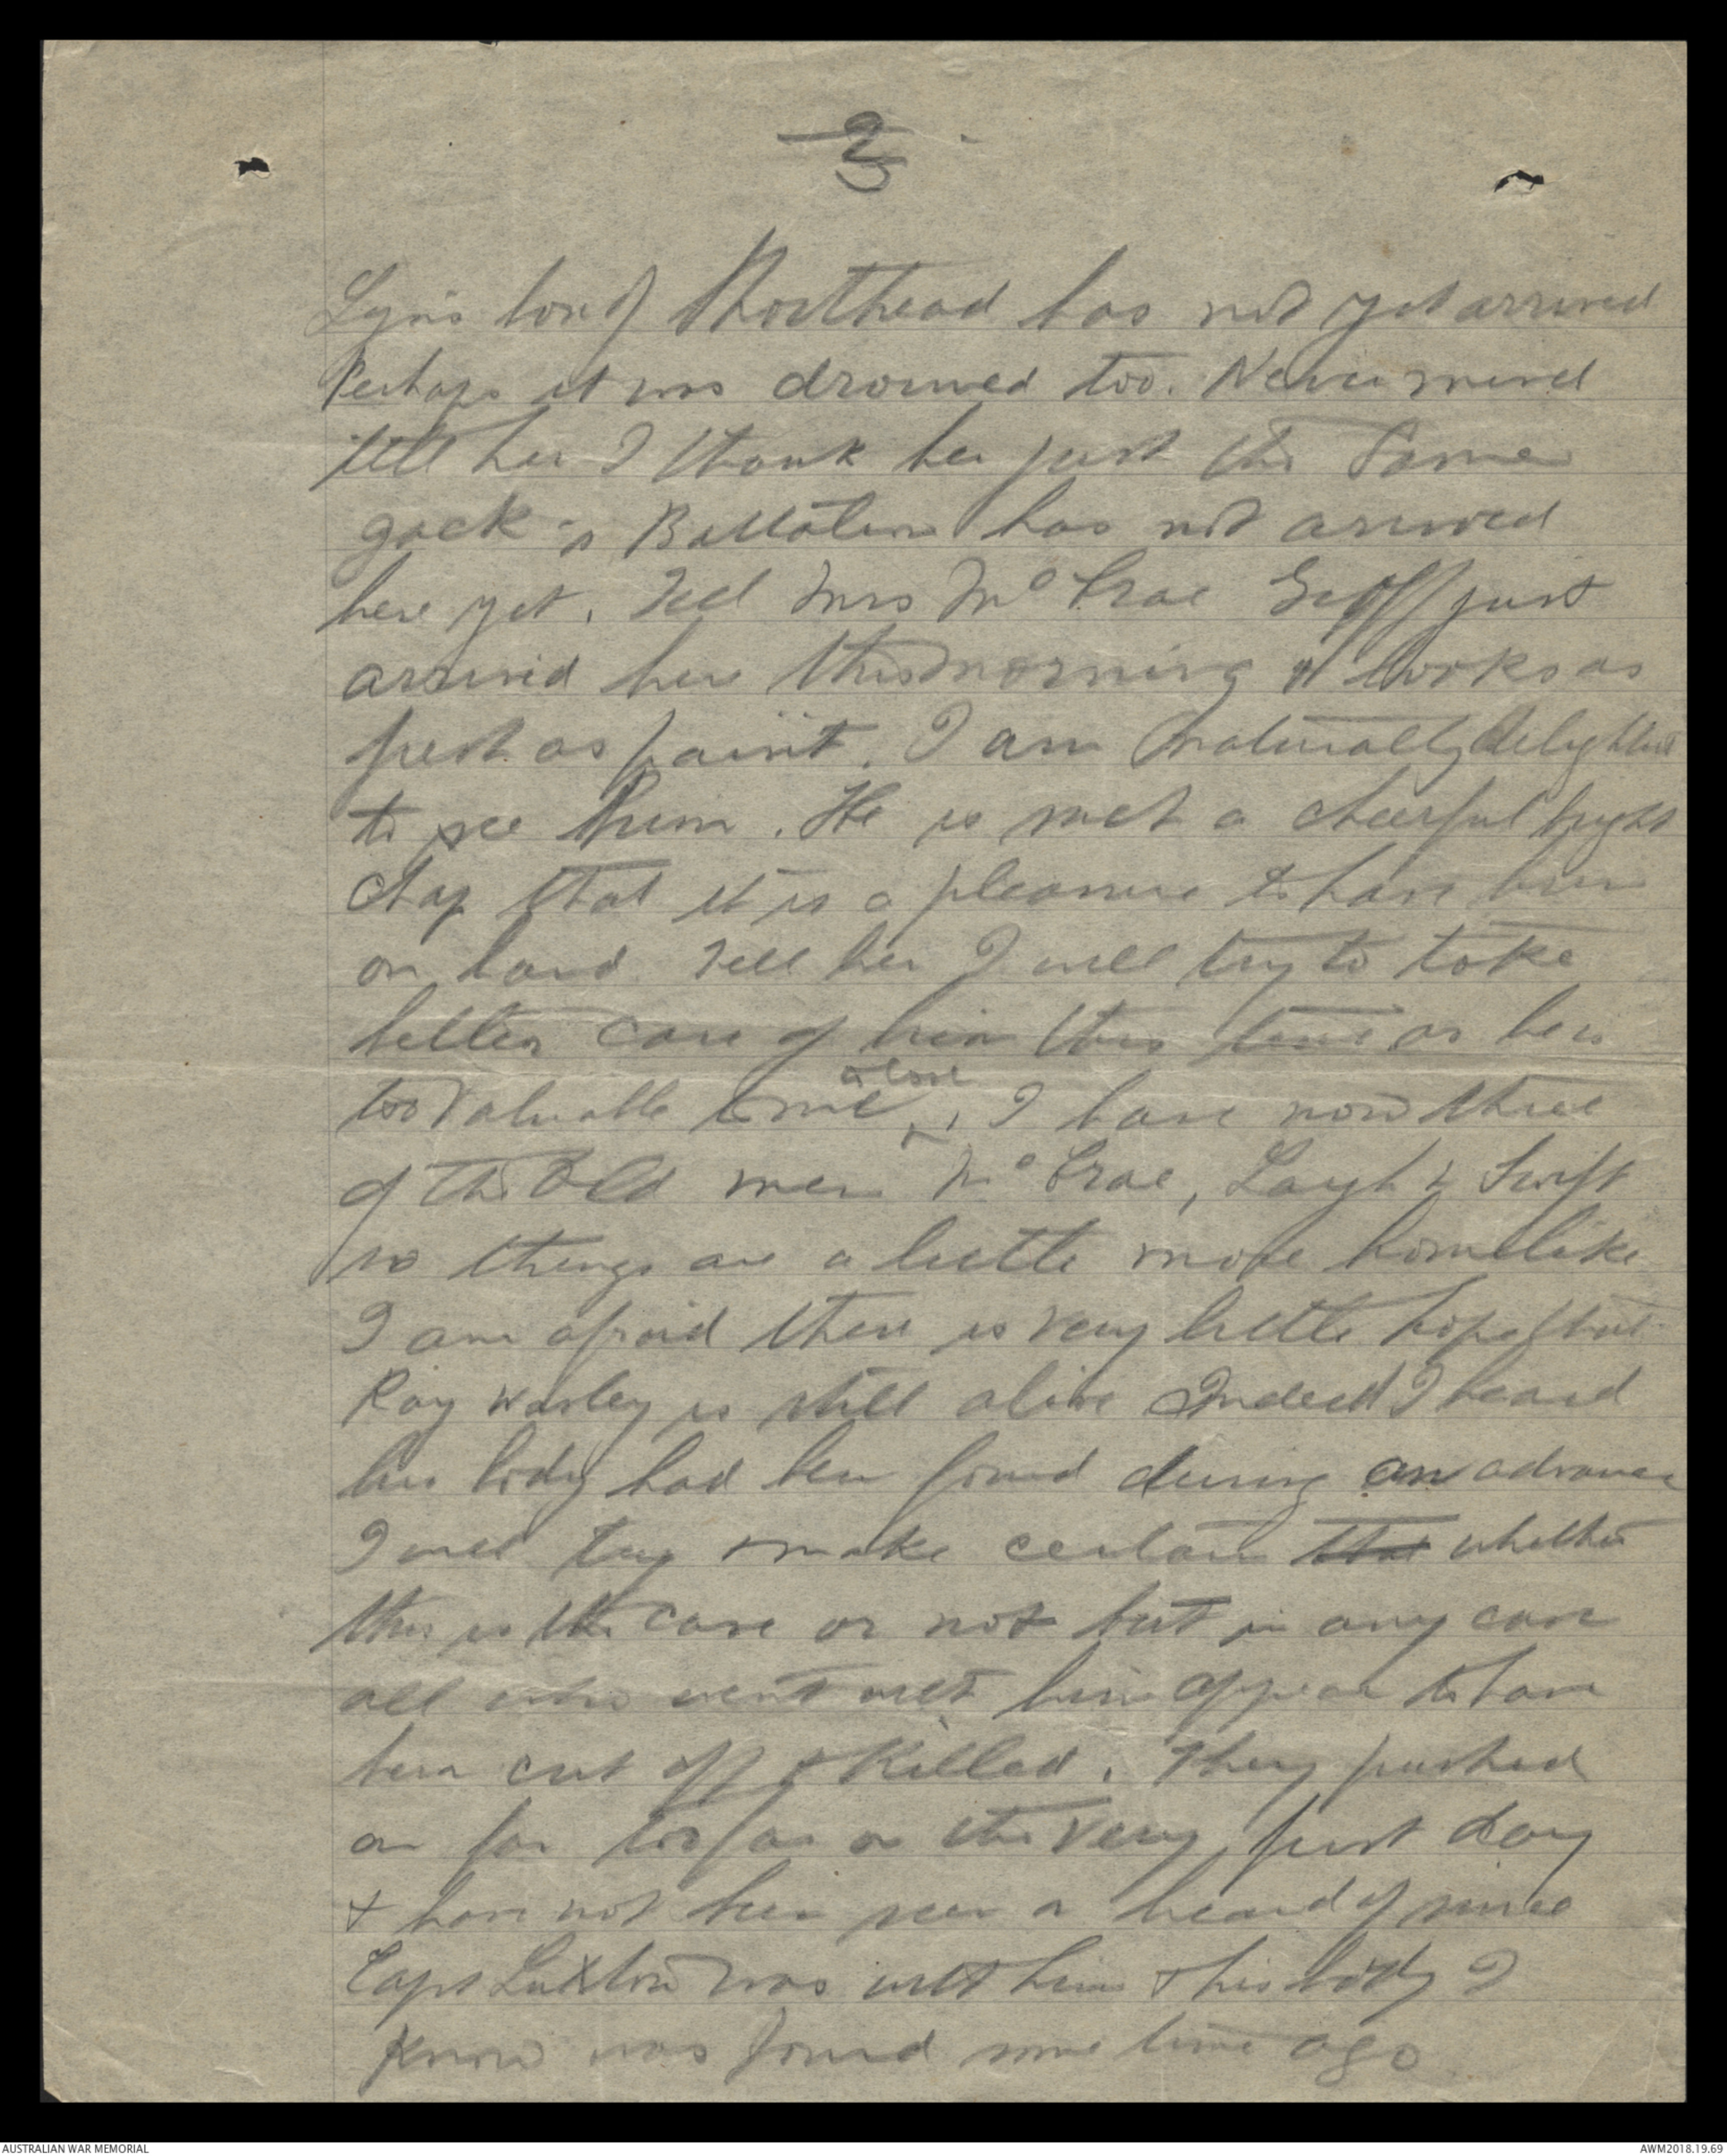 3
Lyn's box of Shortbread has not yet arrived
Perhaps it was drowned too. Never mind
tell her I thank her just the same
Jack's Battalion has not arrived
here yet. Tell Mrs McCrae Geoff just
arrived here this morning & looks as
fresh as paint. I am naturally delighted
to see him. He is such a cheerful bright
chap that it is a pleasure to have him
on hand. Tell her I will try to take
better care of him this time as he is
too valuable to me to lose
. I have now three
of the old men McCrae, Layh & Swift
so things are a little more homelike
I am afraid there is very little hope that
Ray Warley is still alive Indeed I heard
his body had been found during an advance
I will try & make certain that whether
this is the case or not but in any case
all who went with him appear to have
been cut off & killed. They pushed
on far too far on the very first day
& have not been seen or heard of since
Capt Luxton was with him & his body I
know was found some time ago
AUSTRALIAN WAR MEMORIAL
AWM2018.19.69